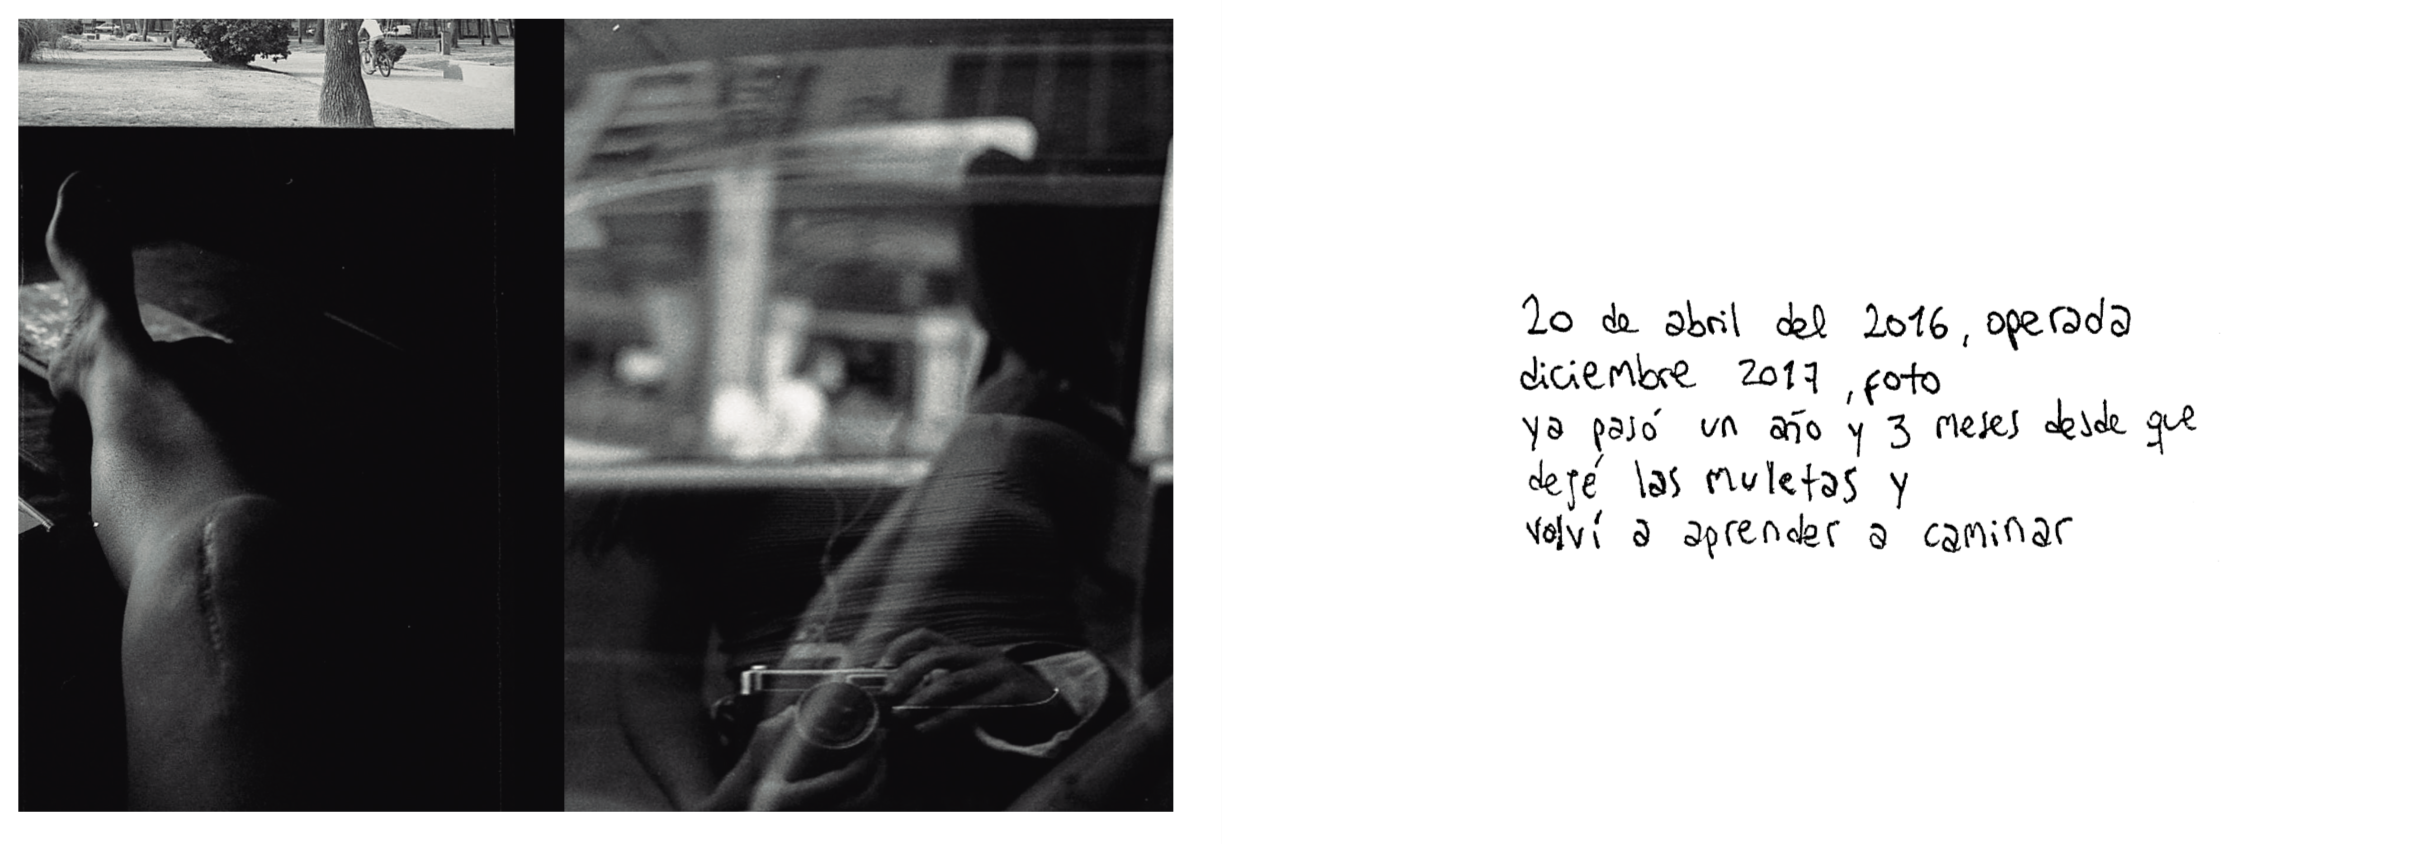 20 de abril del 2016, operada
diciembre 2017, foto
ya pasó un año y 3 meses desde que
dejé las muletas y
volví a aprender a caminar